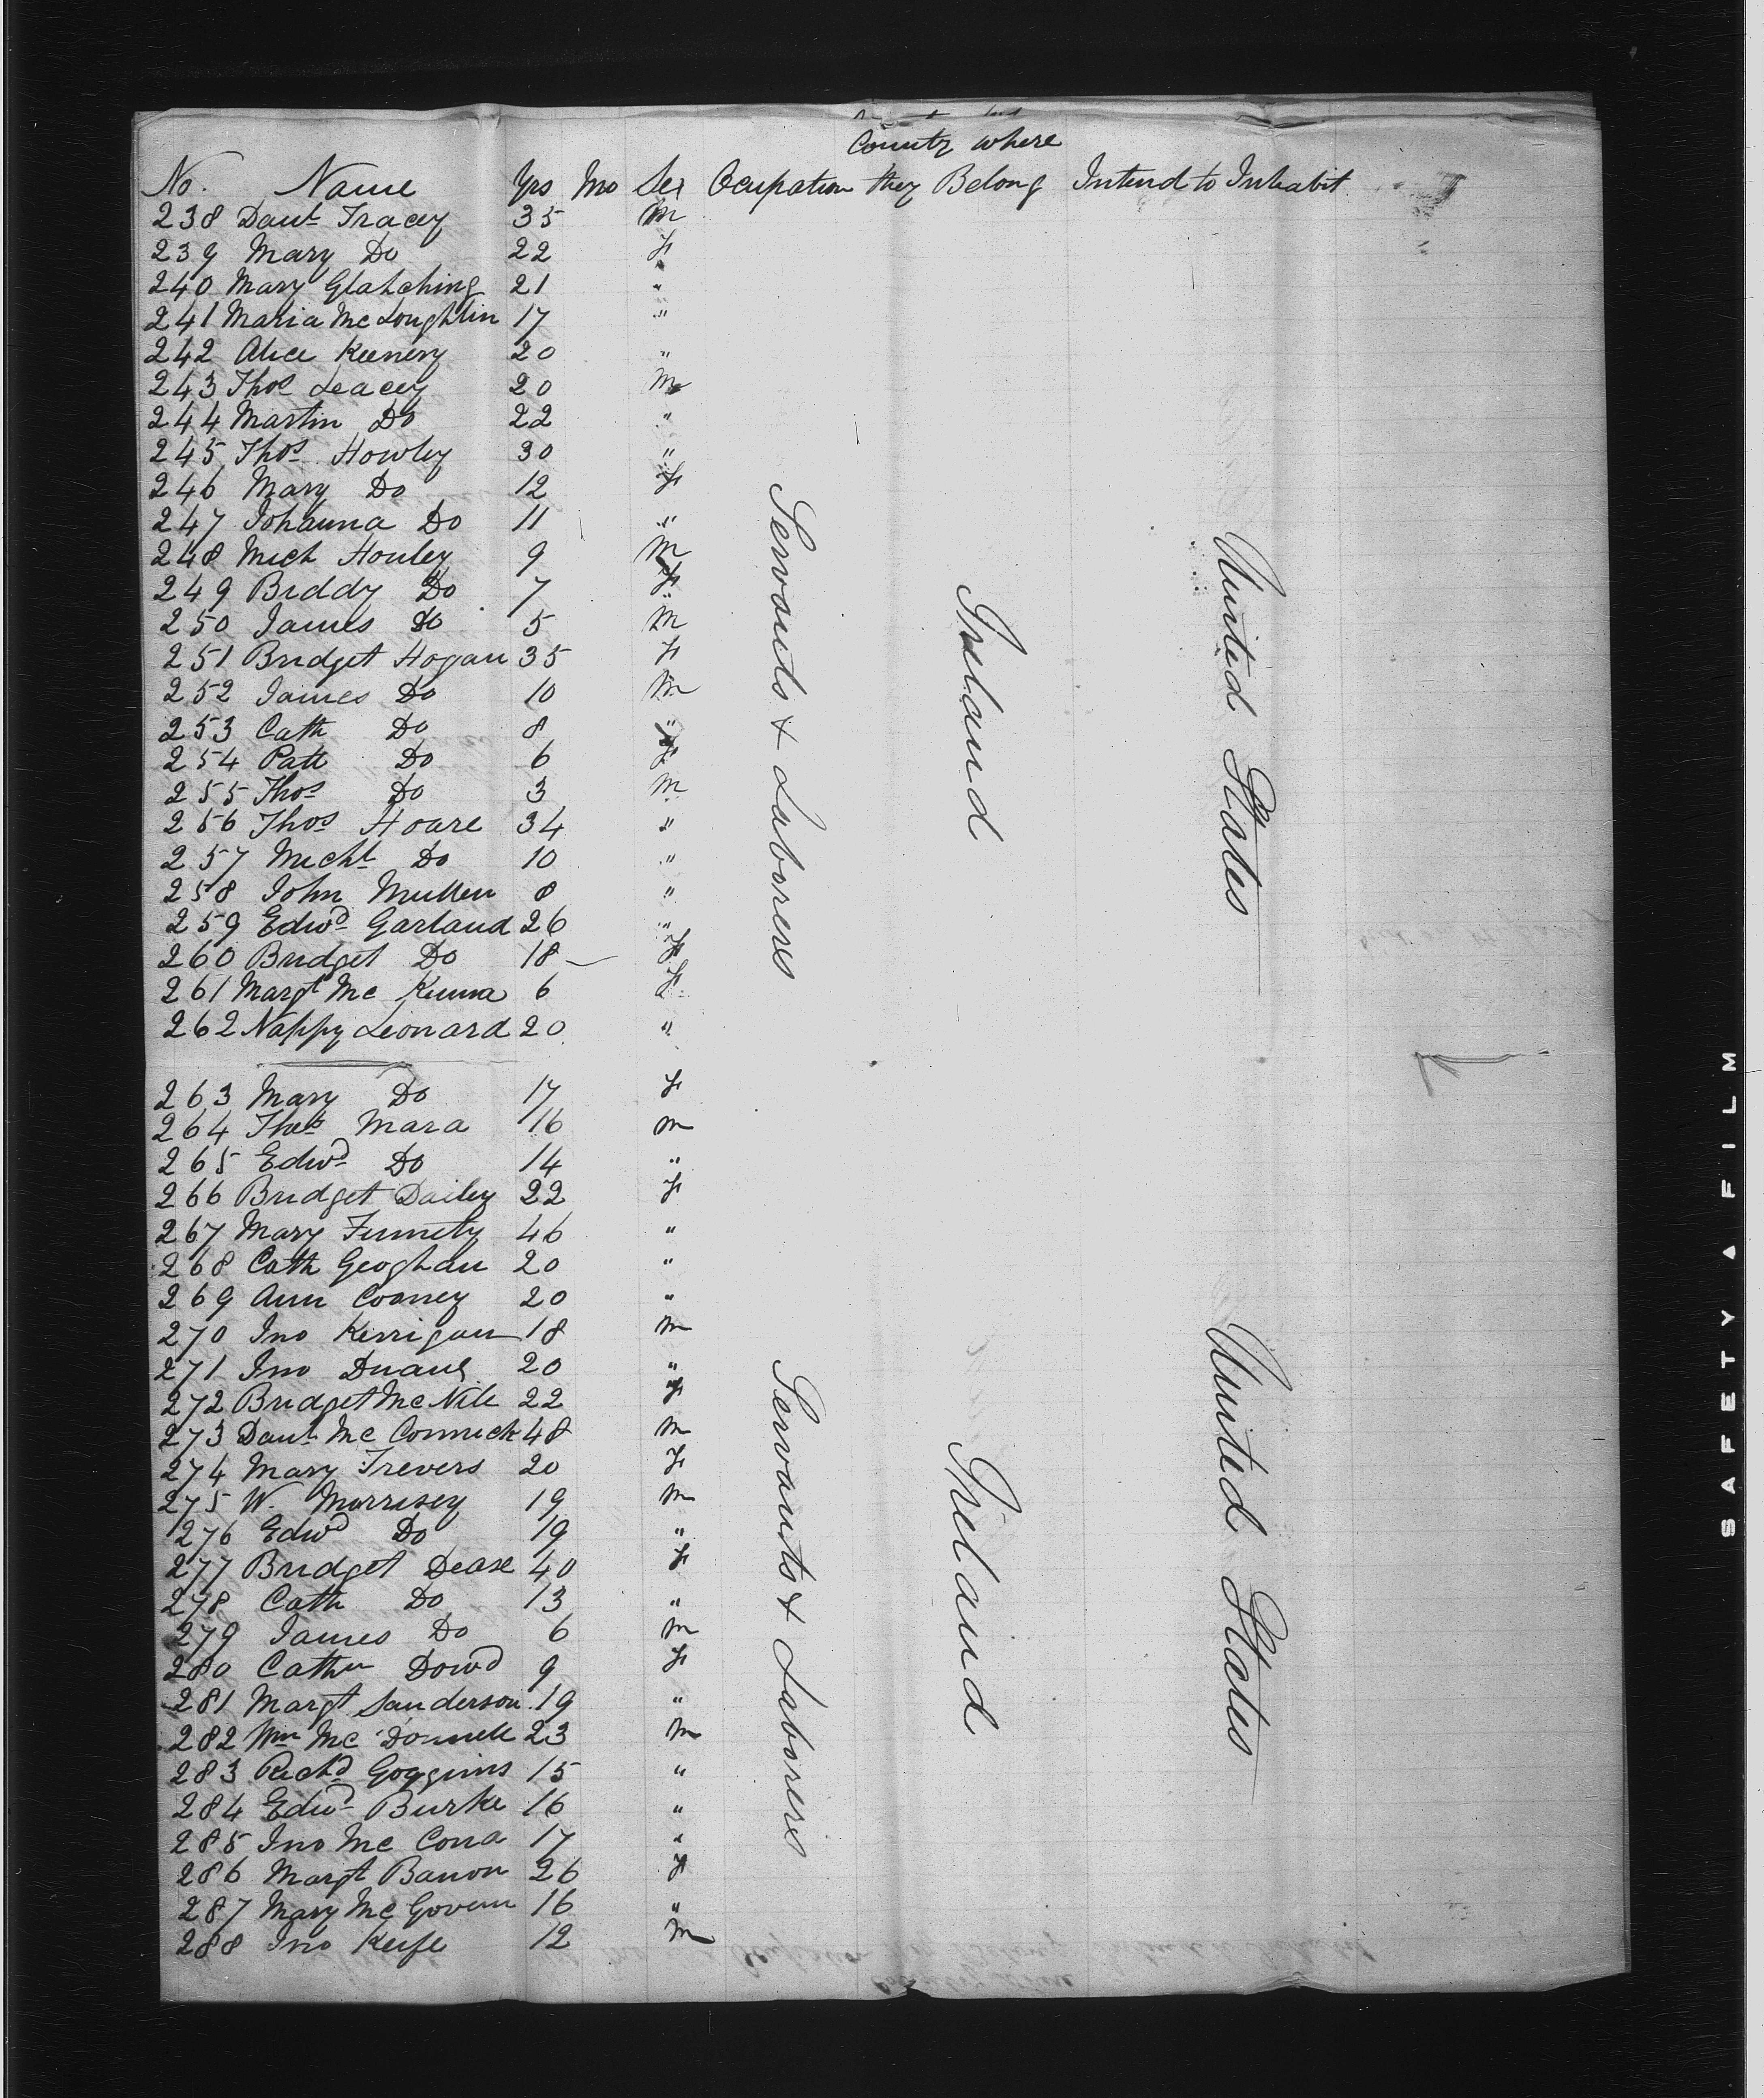 County where
No. Name Yrs Mo Sex Ocupation they Belong Intend to Inhabit
238 Danl Tracey 35 M
239 Mary Do 22 F
240 Mary Glatching 21 "
241 Maria McLoughlin 17 "
242 Alice Keenery 20 "
243 Thos Leacey 20 M
244 Martin Do 22 "
245 Thos Howley 30 "
246 Mary Do 12 F
247 Johanna Do 11 "
248 Mich Houley 9 M
249 Biddy Do 7 F
250 James Do 5 M
251 Bridget Hogan 35 F
252 James Do 10 M
253 Cath Do 8 "
254 Patt Do 6 F
255 Thos Do 3 M
256 Thos Hoare 34 "
257 Michl Do 10 "
258 John Mullen 8 "
259 Edwd Garland 26 "
260 Bridget Do 18 — F
261 Margt Mc Kenna 6 F
262 Nappy Leonard 20 "
Servants & Laborers
Ireland
United States
263 Mary Do 17 F
264 Thos Mara 16 M
265 Edwd Do 14 "
266 Bridget Dailey 22 F
267 Mary Finnety 46 "
268 Cath Geoghan 20 "
269 Ann Cooney 20 "
270 Jno Kerrigan 18 M
271 Jno Duane 20 "
272 Bridget McNile 22 F
273 Danl Mc Cormick 48 M
274 Mary Trevers 20 F
275 W. Morrisey 19 M
276 Edwd Do 19 "
277 Bridget Dease 40 F
278 Cath Do 13 "
279 James Do 6 M
280 Cathn Dowd 9 F
281 Margt Sanderson 19 "
282 Wm Mc Donnell 23 M
283 Richd Goggins 15 "
284 Edwd Burke 16 "
285 Jno Mc Cona 17 "
286 Margt Banon 26 F
287 Mary Mc Govern 16 "
288 Jno Keife 12 M
Servants & Laborers
Ireland
United States
SAFETY ▲ FILM